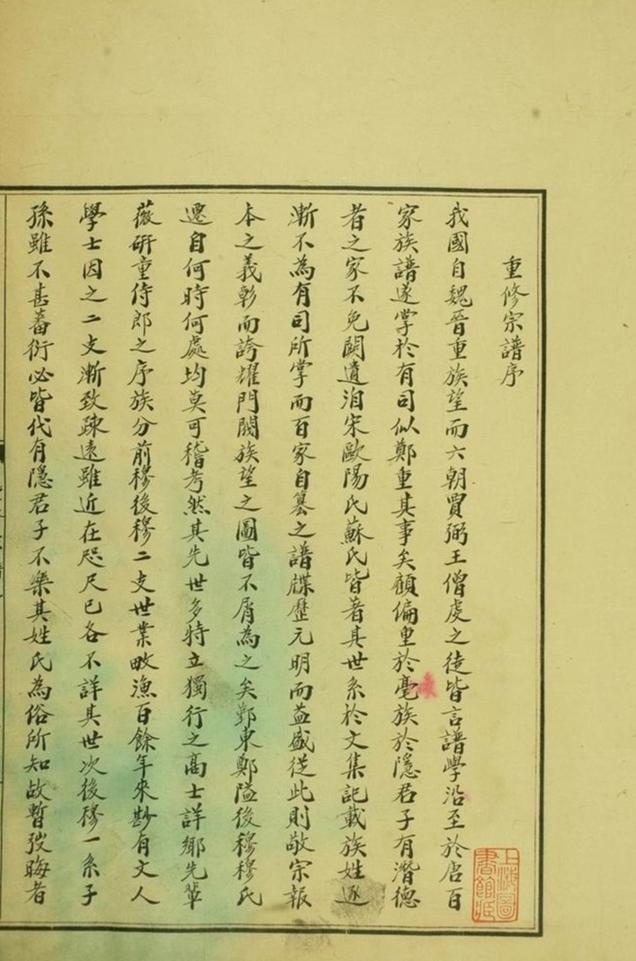 重修宗譜序
我國自魏晉重族望而六朝賈弼王僧虔之徒皆言譜學沿至於唐百
家族譜遂掌於有司似鄭重其事矣顧偏重於毫族於隱君子有潛德
者之家不免闕遺洎宋歐陽氏蘇氏皆著其世系於文集記載族姓遂
漸不為有司所掌而百家自纂之譜牒歷元明而益盛從此則敬宗報
本之義彰而誇耀門閥族望之圖皆不屑為之矣鄞東鄭隘後穆穆氏
遷自何時何處均莫可稽考然其先世多特立獨行之高士詳鄉先輩
薇研童侍郎之序族分前穆後穆二支世業畋漁百餘年來尠有文人
學士因之二支漸致疎遠雖近在咫尺已各不詳其世次後穆一系子
孫雖不甚蕃衍必皆代有隱君子不樂其姓氏為俗所知故暫弢晦者
上海圖書館藏